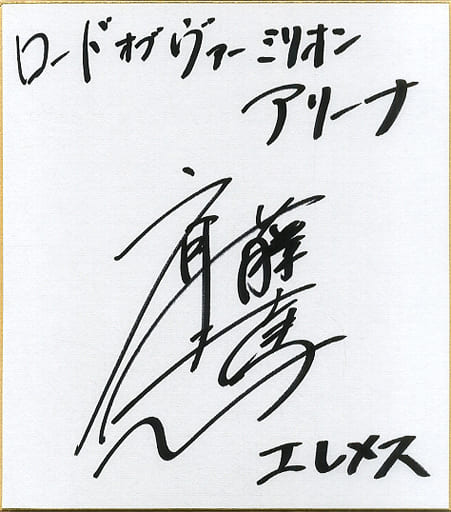 ロードオブヴァーミリオン
アリーナ
エレメス